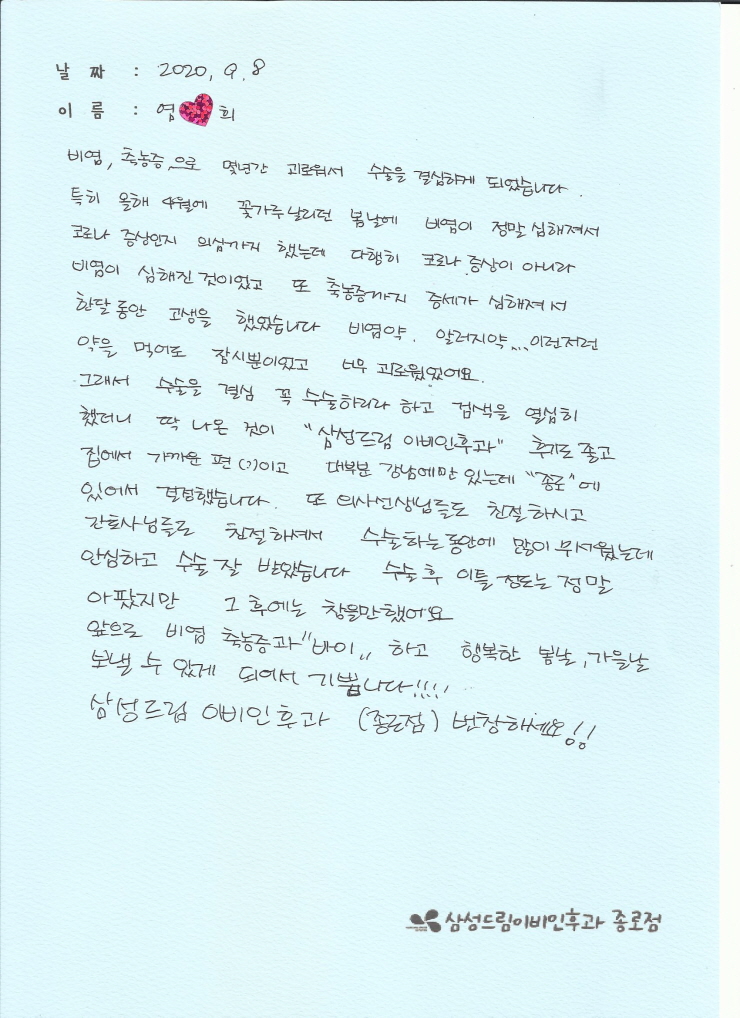 날 짜 : 2020. 9. 8
이 름 : 엄 희
비염, 축농증,으로 몇년간 괴로워서 수술을 결심하게 되었습니다.
특히 올해 4월에 꽃가루날리던 봄날에 비염이 정말 심해져서
코로나 증상인지 의심까지 했는데 다행히 코로나 증상이 아니라
비염이 심해진 것이었고 또 축농증까지 증세가 심해져서
한달동안 고생을 했었습니다 비염약. 알러지약...이런저런
약을 먹어도 잠시뿐이었고 너무 괴로웠었어요.
그래서 수술을 결심 꼭 수술하리라 하고 검색을 열심히
했더니 딱 나온 것이 "삼성드림 이비인후과" 후기도 좋고
집에서 가까운 편(?)이고 대부분 강남에만 있는데 "종로"에
있어서 결정했습니다. 또 의사선생님들도 친절하시고
간호사님들도 친절하셔서 수술하는동안에 많이 무서웠는데
안심하고 수술 잘 받았습니다 수술 후 이틀 정도는 정말
아팠지만 그 후에는 참을만했어요
앞으로 비염 축농증과 "바이" 하고 행복한 봄날, 가을날
보낼 수 있게 되어서 기쁩니다!!!!
삼성드림 이비인후과 (종로점) 번창하세요!!
삼성드림이비인후과 종로점